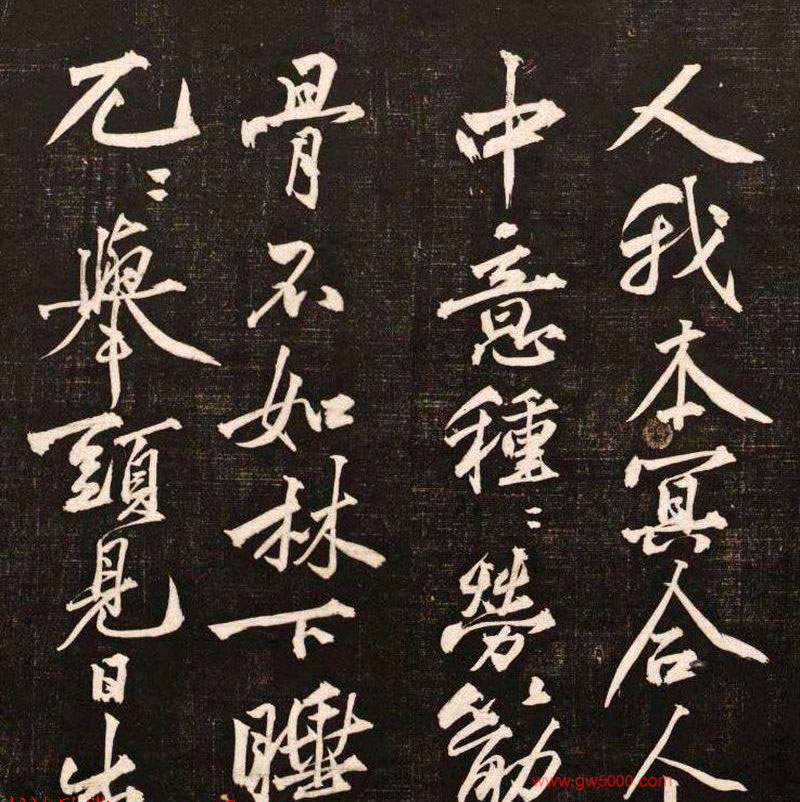 人我本冥合人
中意種〻勞筋
骨不如林下睡
兀〻舉頭見日
www.gw5000.com